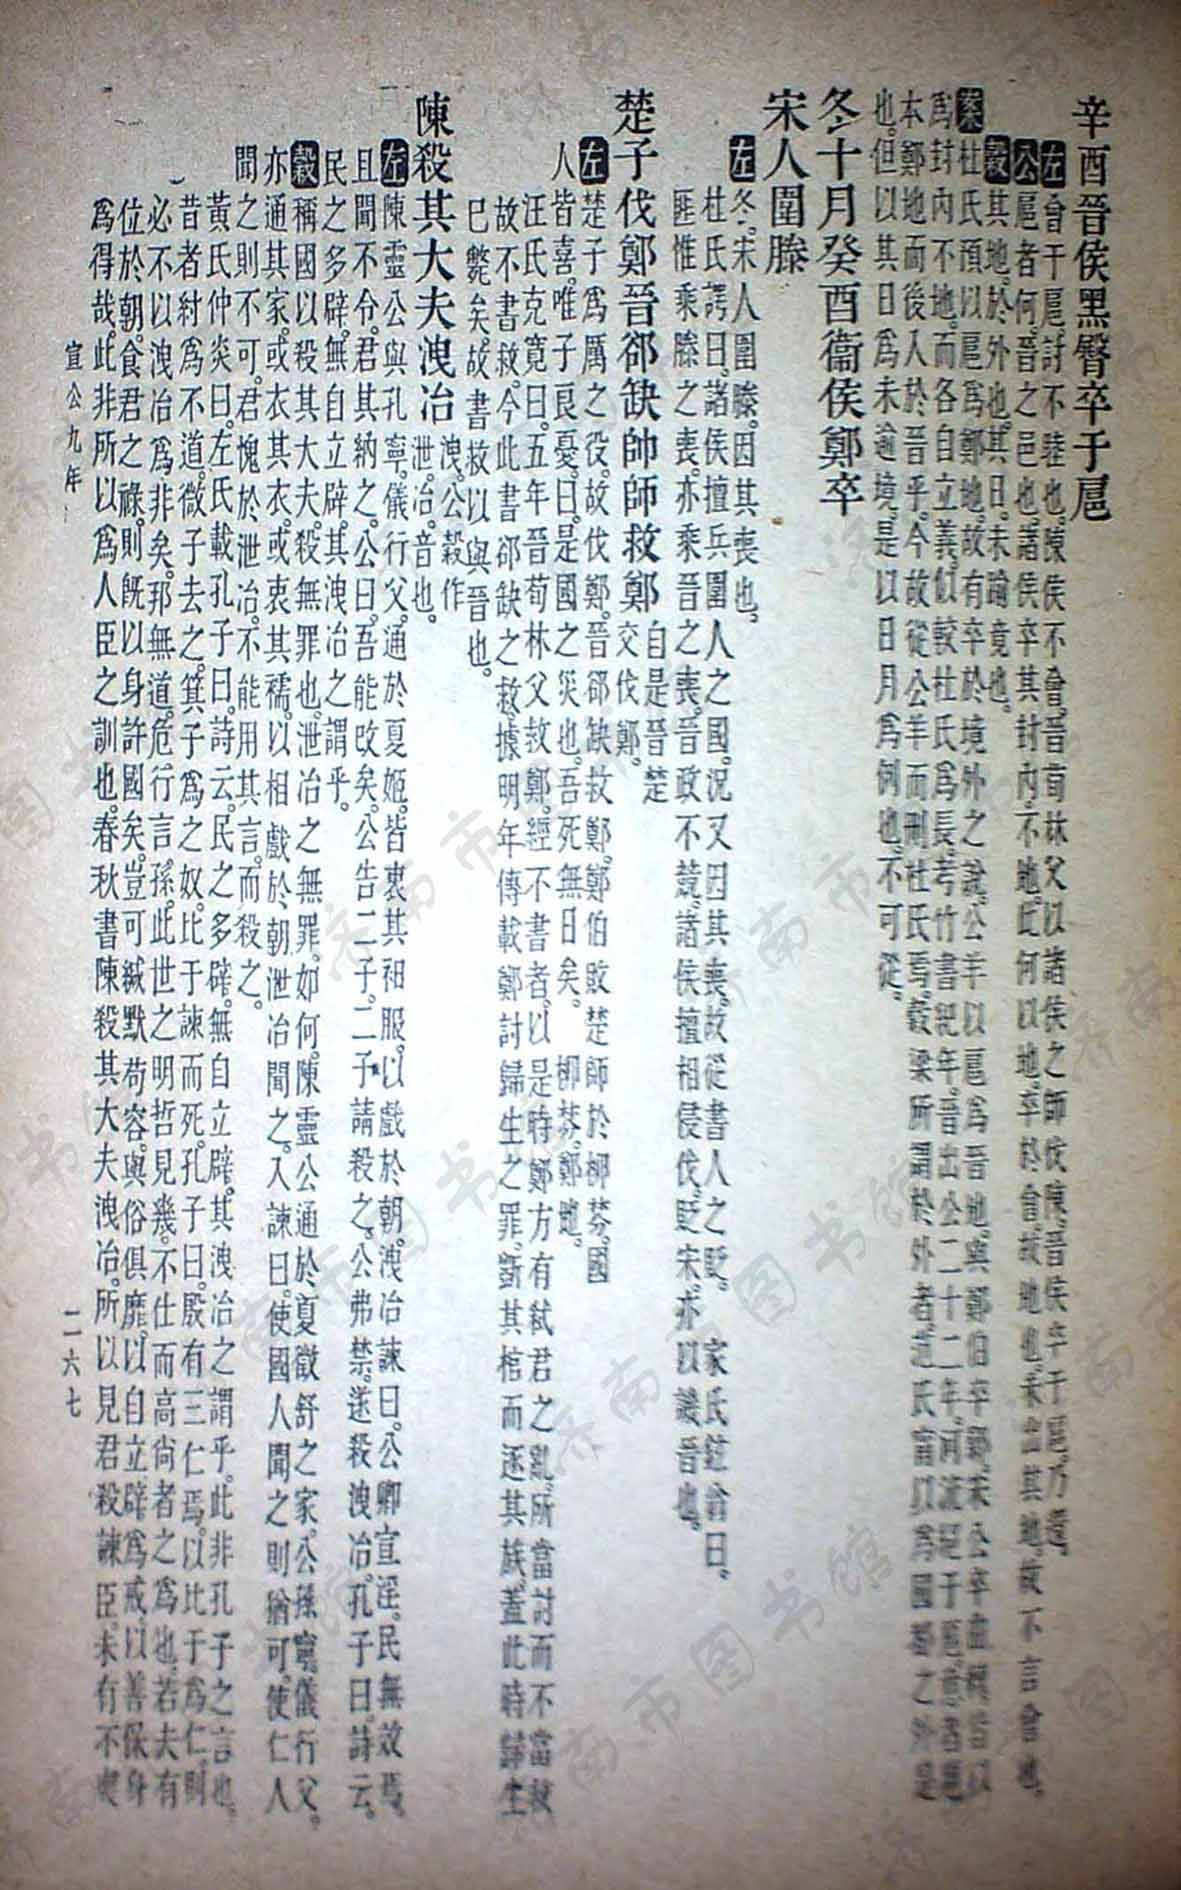 辛酉晉侯黑臀卒于扈
左會于扈討不睦也。陳侯不會。晉荀林父以諸侯之師伐陳。晉侯卒于扈。乃還。
公扈者何。晉之邑也。諸侯卒其封內不地。此何以地。卒於會。故地也。未出其地。故不言會也。
穀其地。於外也。其日。未踰竟也。
案杜氏預以扈爲鄭地。故有卒於境外之說。公羊以扈爲晉地。與鄭伯卒鄵。宋公卒曲棘皆以
爲封內不地。而各自立義。似較杜氏爲長。考竹書紀年。晉出公二十二年。河
本鄭地而後人於晉乎。今故從公羊而刪杜氏焉。穀梁所謂於外者。范氏甯以爲國都之外是
也。但以其日爲未逾境。是以日月爲例也。不可從。
冬十月癸酉衞侯鄭卒
宋人圍滕
左冬。宋人圍滕。因其喪也。
杜氏諤曰。諸侯擅兵圍人之國。況又因其喪。故從書人之貶。 家氏鉉翁曰。
匪惟乘滕之喪。亦乘晉之喪。晉政不競。諸侯擅相侵伐。貶宋。亦以譏晉也。
楚子伐鄭晉郤缺帥師救鄭 自是晉楚交伐鄭。
左楚子爲厲之役。故伐鄭。晉郤缺救鄭。鄭伯敗楚師於柳棼。國
人皆喜。唯子良憂。曰。是國之災也。吾死無日矣。 柳棼。鄭地。
汪氏克寬曰。五年晉荀林父救鄭。經不書者。以是時鄭方有弒君之亂。所當討而不當救
故不書救。今此書郤缺之救。據明年傳載鄭討歸生之罪。斲其棺而逐其族。蓋此時歸生
已斃矣。故書救以與晉也。
陳殺其大夫洩冶 洩。公穀作泄。冶。音也。
左陳靈公與孔寧。儀行父。通於夏姬。皆衷其衵服。以戲於朝。洩冶諫曰。公卿宣淫。民無效焉。
且聞不令。君其納之。公曰。吾能改矣。公告二子。二子請殺之。公弗禁。遂殺洩冶。孔子曰。詩云。
民之多辟。無自立辟。其洩冶之謂乎。
穀稱國以殺其大夫。殺無罪也。泄冶之無罪。如何。陳靈公通於夏徵舒之家。公孫寧。儀行父。
亦通其家。或衣其衣。或衷其襦。以相戲於朝。泄冶聞之。入諫曰。使國人聞之則猶可。使仁人
聞之則不可。君愧於泄冶。不能用其言。而殺之。
黃氏仲炎曰。左氏載孔子曰。詩云。民之多辟。無自立辟。其洩冶之謂乎。此非孔子之言也。
昔者紂爲不道。微子去之。箕子爲之奴。比于諫而死。孔子曰。殷有三仁焉。以比于爲仁。則
必不以洩冶爲非矣。邦無道。危行言孫。此世之明哲見幾。不仕而高尚者之爲也。若夫有
位於朝。食君之祿。則既以身許國矣。豈可緘默苟容。與俗俱靡。以自立辟爲戒。以善保身
爲得哉。此非所以爲人臣之訓也。春秋書陳殺其大夫洩冶。所以見君殺諫臣。未有不
宣公九年
二六七